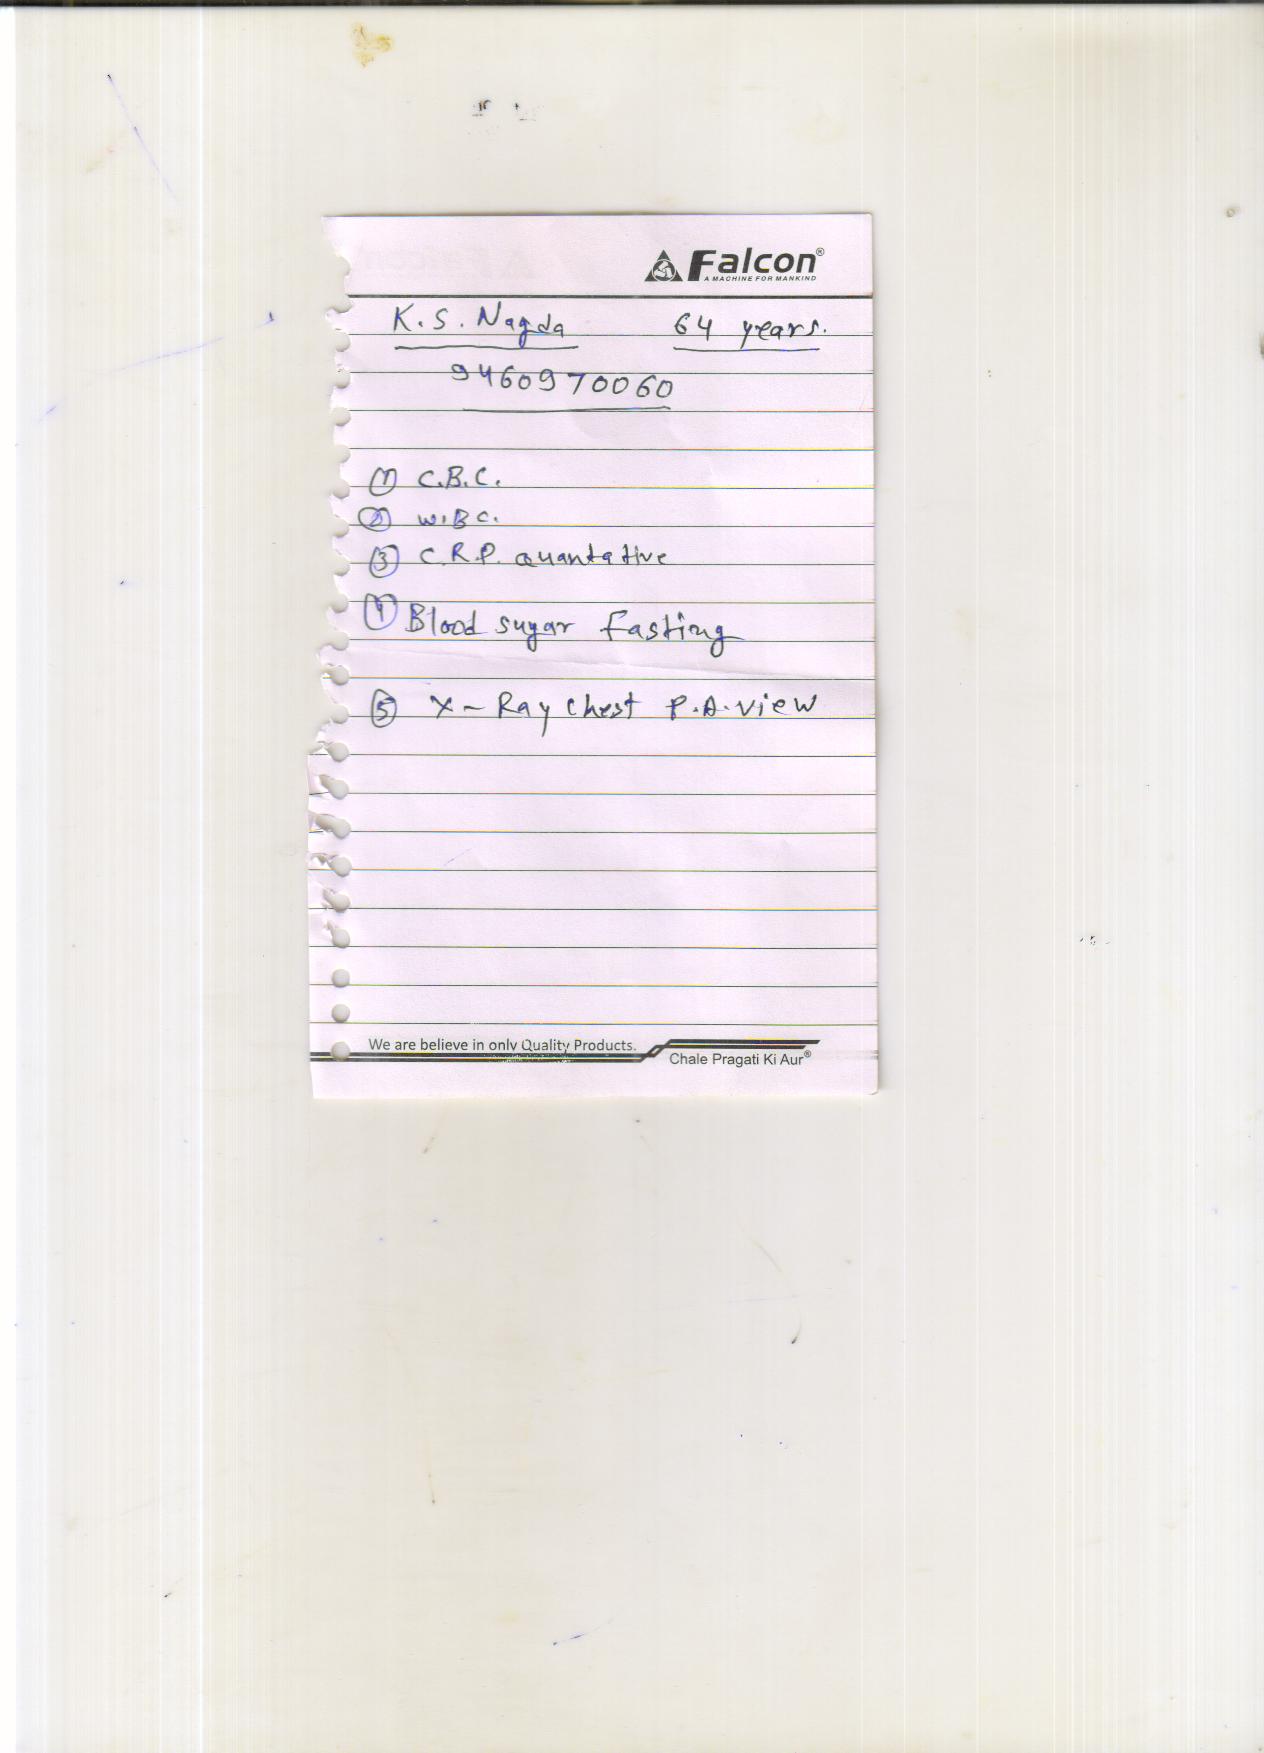 Falcon®
A MACHINE FOR MANKIND
K.S. Nagda 64 years.
9460970060
① C.B.C.
② W.B.C.
③ C.R.P. quantative
④ Blood sugar Fasting
⑤ X-Ray Chest P.A. view
We are believe in only Quality Products.
Chale Pragati Ki Aur®